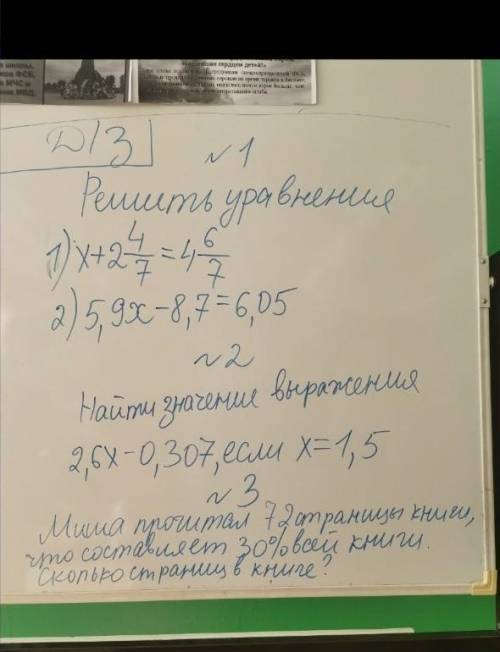 Д/З
№1
Решить уравнения
1) x+2 4/7 = 4 6/7
2) 5,9x-8,7=6,05
№2
Найти значение выражения
2,6x-0,307, если x=1,5
№3
Миша прочитал 72 страницы книги,
что составляет 30% всей книги.
Сколько страниц в книге?